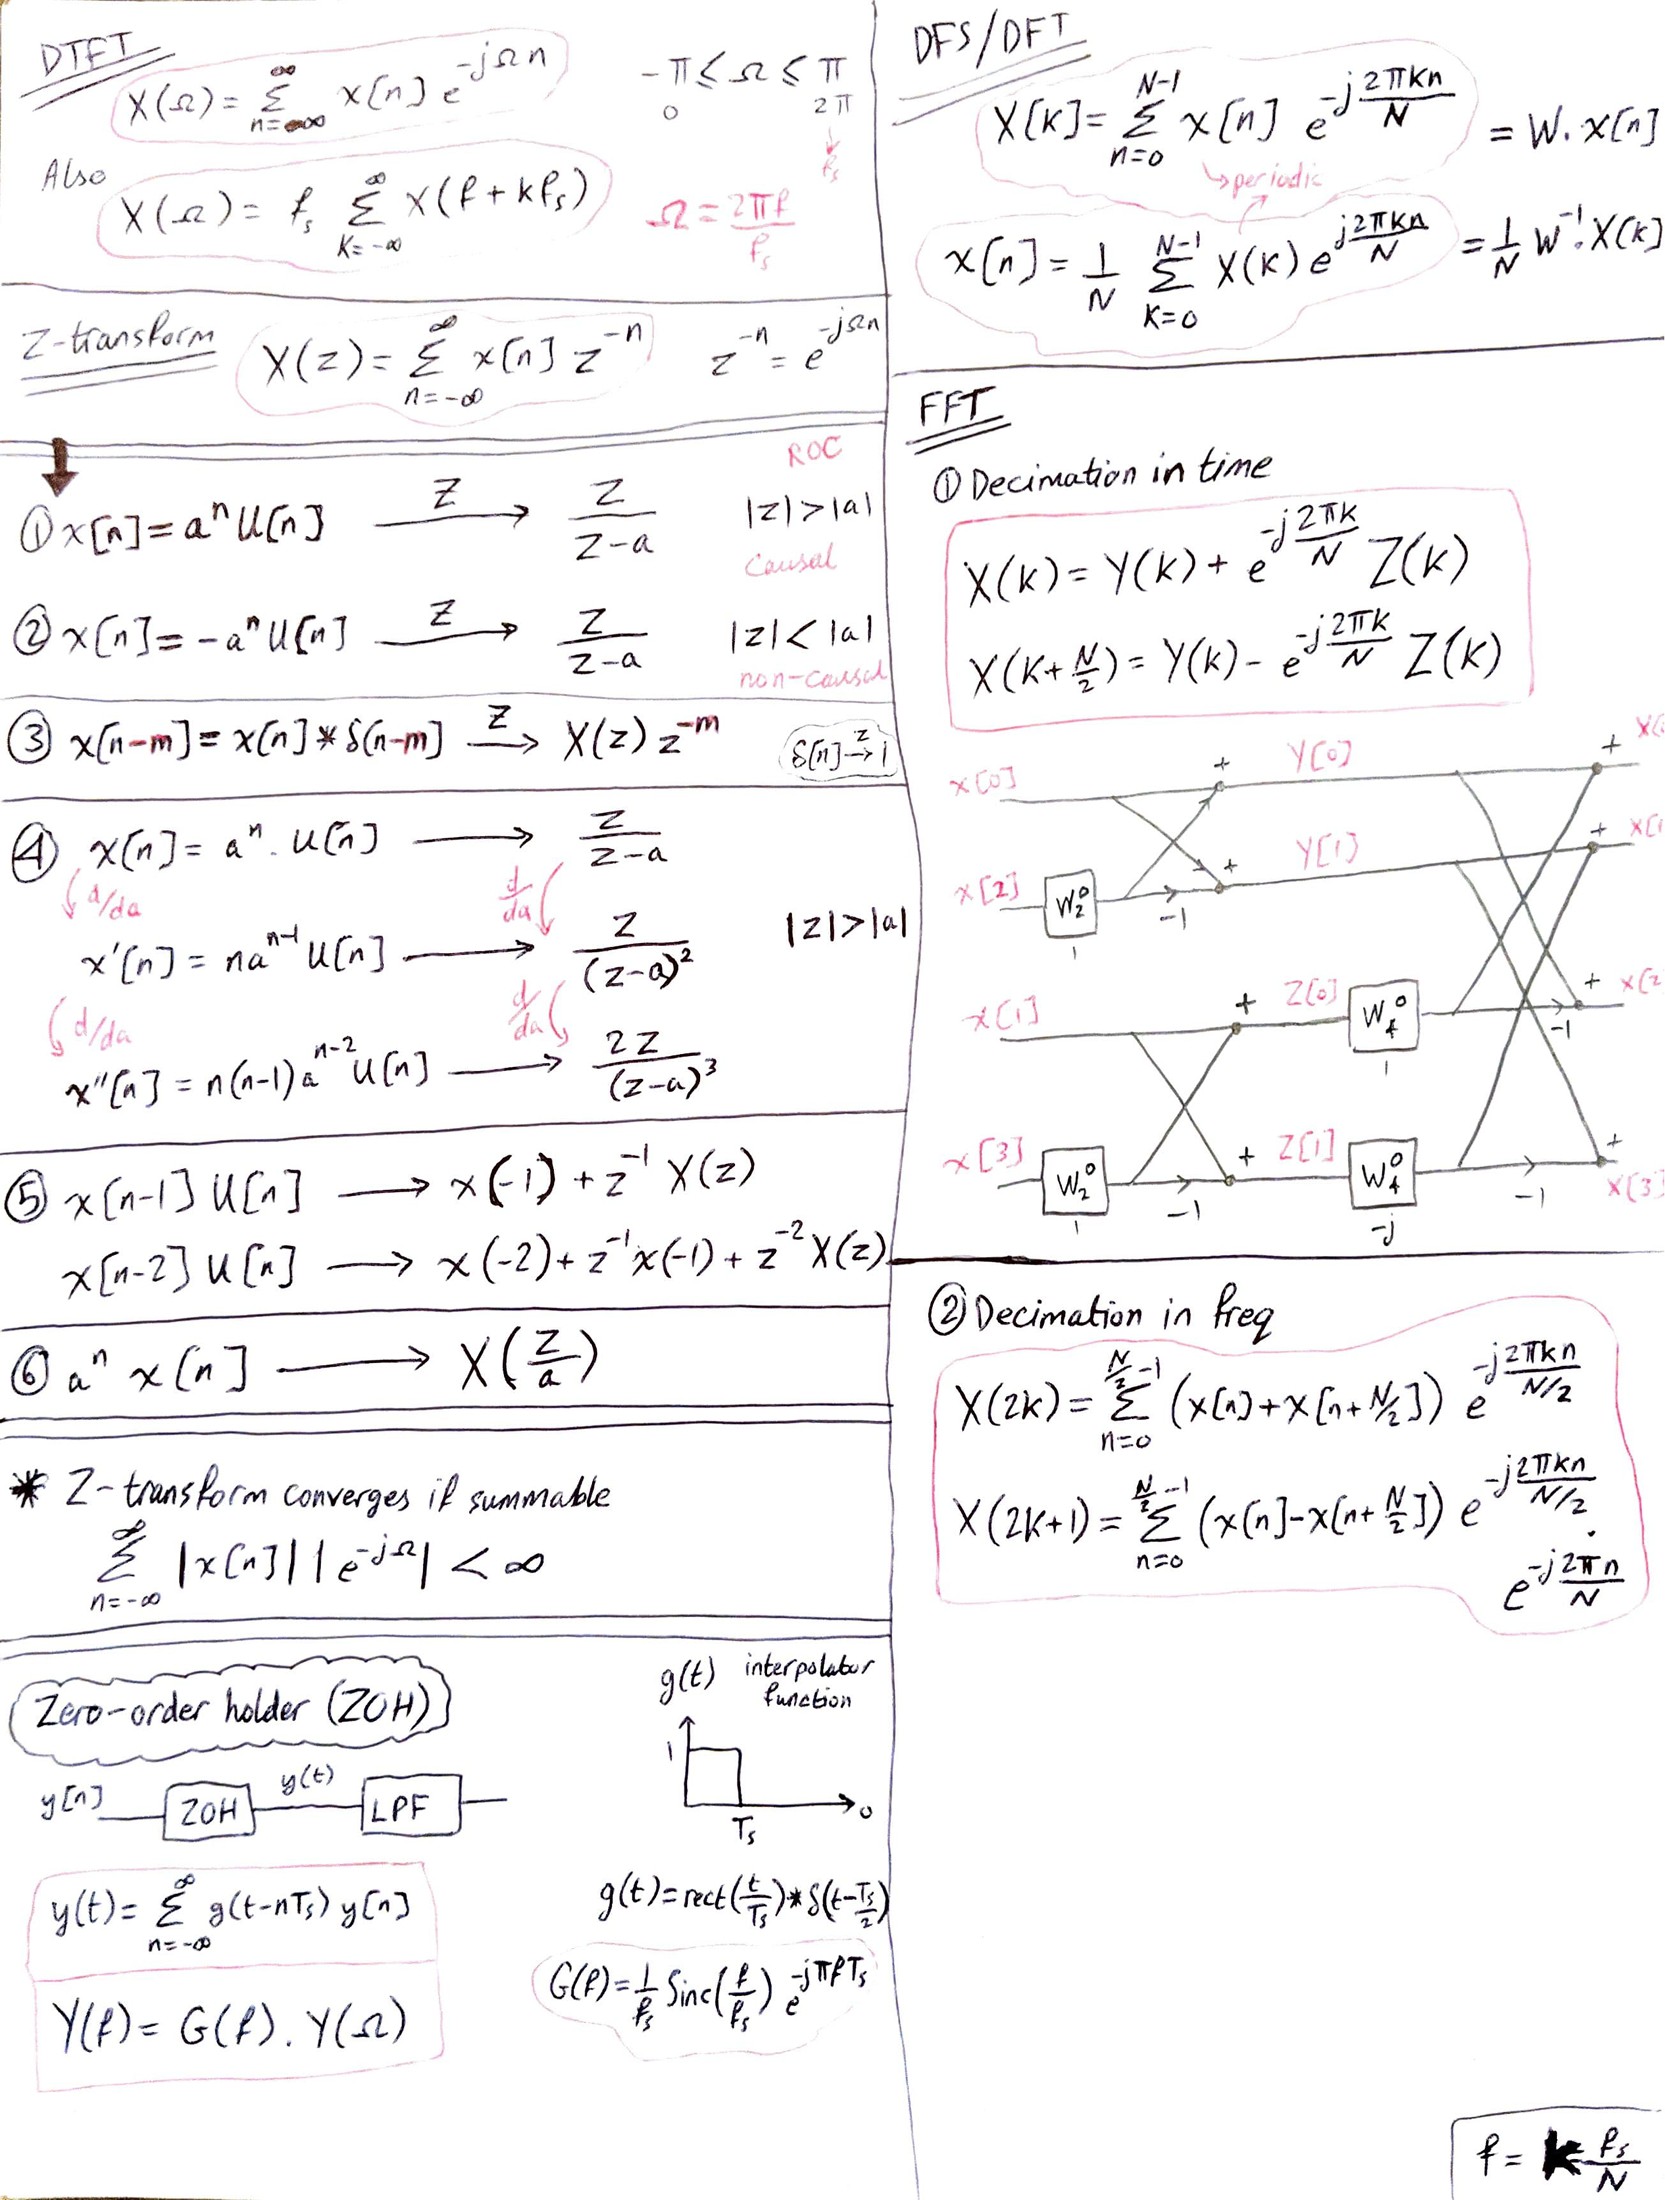 DTFT
X(Ω) = ∞ Σ n=-∞ x[n] e^{-jΩn}
-π ≤ Ω ≤ π
0 2π
↓
fs
Also
X(Ω) = fs ∞ Σ k=-∞ X(f + kfs)
Ω = 2πf / fs
Z-transform
X(z) = ∞ Σ n=-∞ x[n] z^{-n}
z^{-n} = e^{-jΩn}
ROC
① x[n] = a^n U[n] —Z→ Z / (Z-a) |z| > |a|
causal
② x[n] = -a^n U[n] —Z→ Z / (Z-a) |z| < |a|
non-causal
③ x[n-m] = x[n] * δ[n-m] —Z→ X(z) z^{-m}
δ[n] —z→ 1
④ x[n] = a^n . U[n] → Z / (Z-a)
d/da d/da
x'[n] = na^{n-1} U[n] → Z / (Z-a)^2 |z| > |a|
d/da d/da
x''[n] = n(n-1) a^{n-2} U[n] → 2Z / (Z-a)^3
⑤ x[n-1] U[n] → x(-1) + z^{-1} X(z)
x[n-2] U[n] → x(-2) + z^{-1} x(-1) + z^{-2} X(z)
⑥ a^n x[n] → X(Z/a)
* Z-transform converges if summable
∞ Σ n=-∞ |x[n]| |e^{-jΩ}| < ∞
Zero-order holder (ZOH)
y[n] ZOH y(t) LPF
g(t) interpolator
function
1
Ts
0
y(t) = ∞ Σ n=-∞ g(t-nTs) y[n]
Y(f) = G(f) . Y(Ω)
g(t) = rect(t/Ts) * δ(t - Ts/2)
G(f) = 1/fs Sinc(f/fs) e^{-jπfTs}
DFS/DFT
X[k] = N-1 Σ n=0 x[n] e^{-j2πkn/N} = W. x[n]
↳ periodic
x[n] = 1/N N-1 Σ k=0 X(k) e^{j2πkn/N} = 1/N W^{-1}. X(k)
FFT
① Decimation in time
X(k) = Y(k) + e^{-j2πk/N} Z(k)
X(k + N/2) = Y(k) - e^{-j2πk/N} Z(k)
x[0] + Y[0] +
+ Y[1] + X[1
x[2] W_2^0 -1
1
x[1] + Z[0] W_4^0 + X[2
1 -1
x[3] W_2^0 + Z[1] W_4^0 + X[3]
1 -1 -j -1
② Decimation in freq
X(2k) = N/2 -1 Σ n=0 (x[n] + x[n + N/2]) e^{-j2πkn/(N/2)}
X(2k+1) = N/2 -1 Σ n=0 (x[n] - x[n + N/2]) e^{-j2πkn/(N/2)}
. e^{-j2πn/N}
f = k fs/N